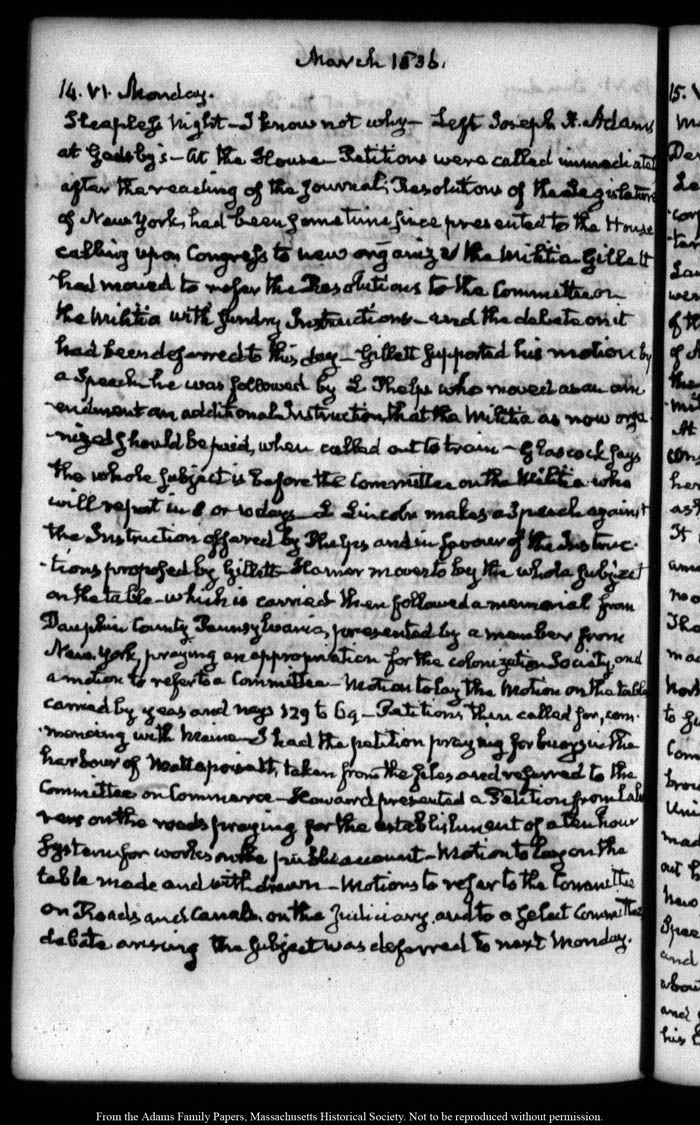 March 1836.
14. VI. Monday.
Sleepless Night—I know not why—Left Joseph H. Adams
at Gadsby's—At the House Petitions were called immediately
after the reading of the Journal; Resolutions of the Legislature
of New York, had been sometime since presented to the House
calling upon Congress to new organize the Militia Gillett
had moved to refer the Resolutions to the Committee on
the Militia with sundry Instructions—and the debate on it
had been deferred to this day—Gillett supported his motion by
a Speech—he was followed by L Phelps who moved as an am-
-endment an additional Instruction, that the Militia as now orga-
-nized should be paid, when called out to train—Glascock says
the whole subject is before the Committee on the Militia who
will report in 8 or 10 days—L Lincoln makes a Speech against
the Instruction offered by Phelps and in favour of the Instruc-
-tions proposed by Gillett—Hamer moves to lay the whole subject
on the table—which is carried then followed a memorial from
Dauphin County Pennsylvania, presented by a member from
New York, praying an appropriation for the colonization Society, and
a motion to refer to a Committee—Motion to lay the Motion on the table
carried by yeas and nays 129 to 69—Petitions then called for, com-
-mencing with Maine—I had the petition praying for buoys in the
harbour of Mattapoisett, taken from the files and referred to the
Committee on Commerce—Howard presented a Petition from Labo
rers on the roads praying for the establishment of a ten hour
System for works on the public account—Motion to lay on the
table made and withdrawn—Motions to refer to the Committee
on Roads and Canals, on the Judiciary and to a Select Committee
debate arising the subject was deferred to next Monday.
15. V
From the Adams Family Papers, Massachusetts Historical Society. Not to be reproduced without permission.